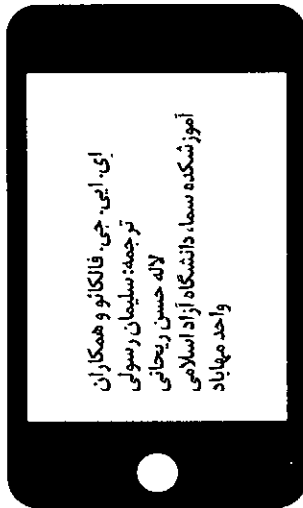 اِی. ایی. جی. فالکائو و همکاران
ترجمه: سلیمان رسولی
لاله حسن ریحانی
آموزشکده سما، دانشگاه آزاد اسلامی
واحد مهاباد